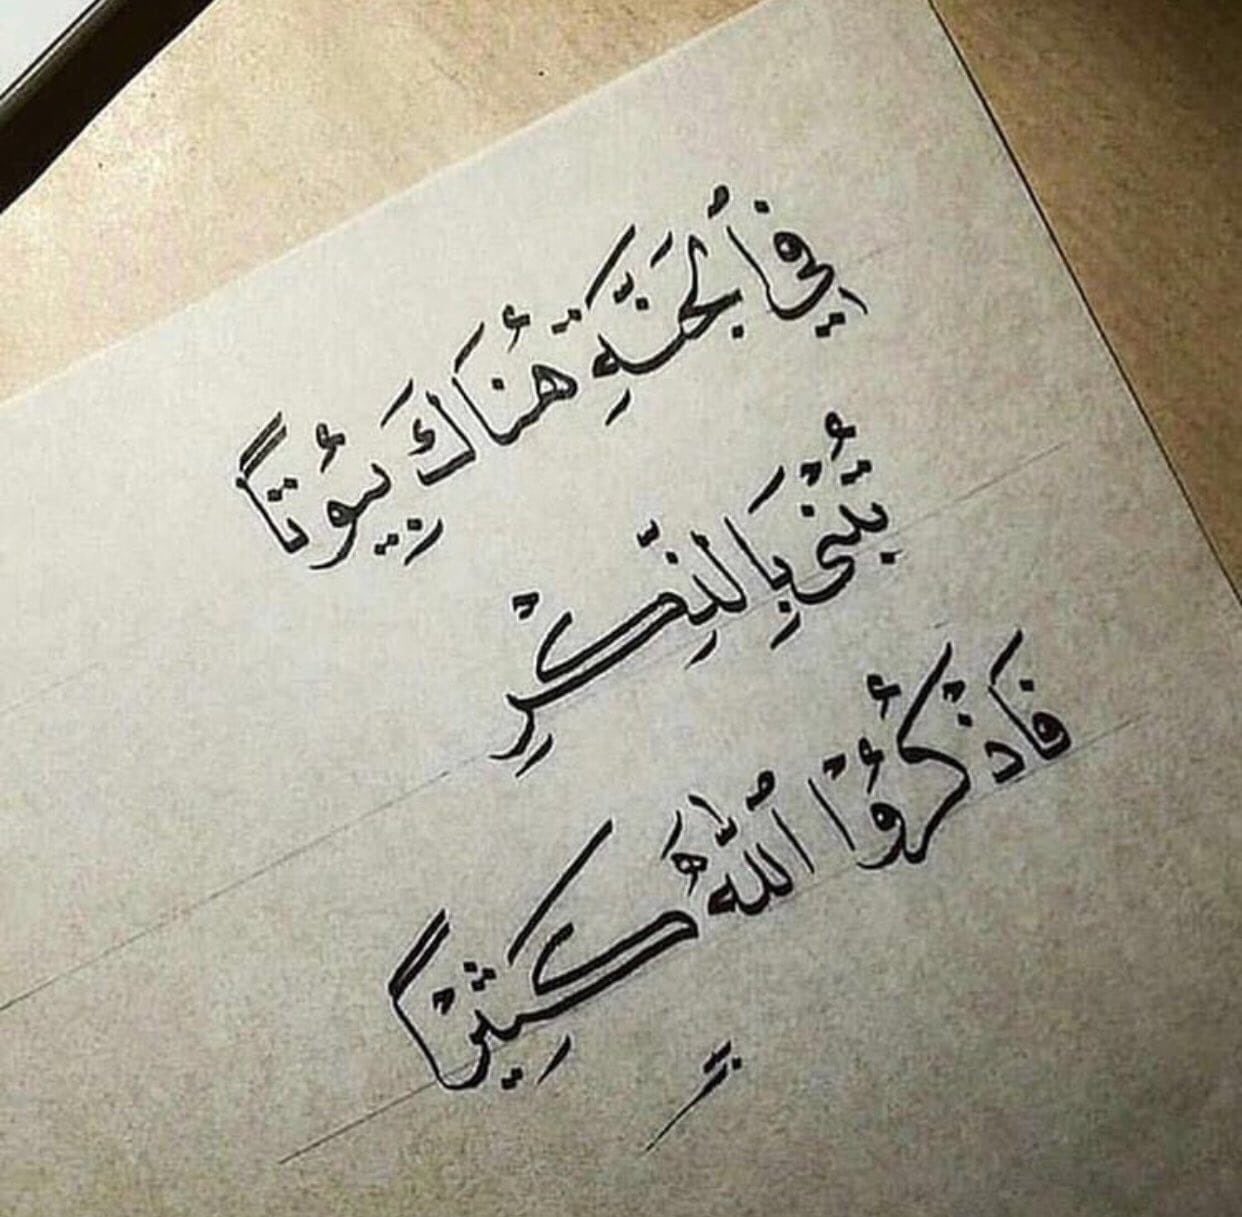 فِي ٱلْجَنَّةِ هُنَاكَ بِيُوتاً
تُبْنَى بِالذِّكْرِ
فَاذْكُرُوْا ٱللّٰهَ كَثِيْراً